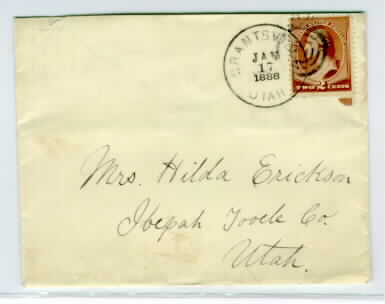 GRANTSVILLE
JAN
17
1888
UTAH
TWO 2 CENTS
Mrs. Hilda Erickson
Ibepah Tooele Co.
Utah.